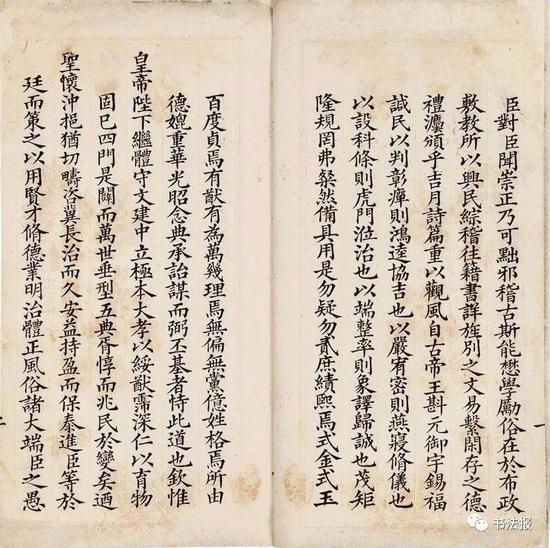 臣對臣聞崇正乃可黜邪稽古斯能懋學勵俗在於布政
敷教所以興民綜稽往籍書詳旌別之文易繫閑存之德
禮灋頒乎吉月詩篇重以觀風自古帝王斟元御宇錫福
諴民以判彰癉則鴻逵協吉也以嚴宥密則燕寢脩儀也
以設科條則虎門涖治也以端整率則象譯歸誠也茂矩
隆規罔弗粲然備具用是勿疑勿貳庶績熙焉式金式玉
一
百度貞焉有猷有為萬幾理焉無偏無黨億姓格焉所由
德媲重華光昭念典承詒謀而弼丕基者恃此道也欽惟
皇帝陛下繼體守文建中立極本大孝以綏猷霈深仁以育物
固已四門是闢而萬世垂型五典胥惇而兆民於變矣迺
聖懷沖挹猶切疇咨冀長治而久安益持盈而保泰進臣等於
廷而策之以用賢才脩德業明治體正風俗諸大端臣之愚
二
书法报